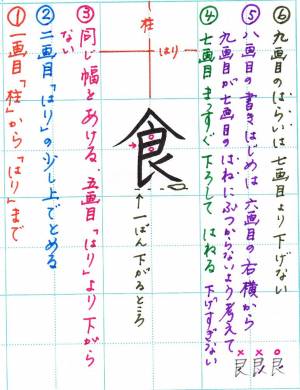 ⑥ 九画目のはらいは七画目より下げない
⑤ 八画目の書きはじめは 六画目の右横から
九画目が七画目のはねにぶつからないよう考えて
下げすぎない
④ 七画目 まっすぐ下ろして はねる
柱
はり
食
一ばん下がるところ
③ 同じ幅をあける 五画目「はり」より下がら
ない
② 二画目「はり」の少し上でとめる
① 一画目「柱」から「はり」まで